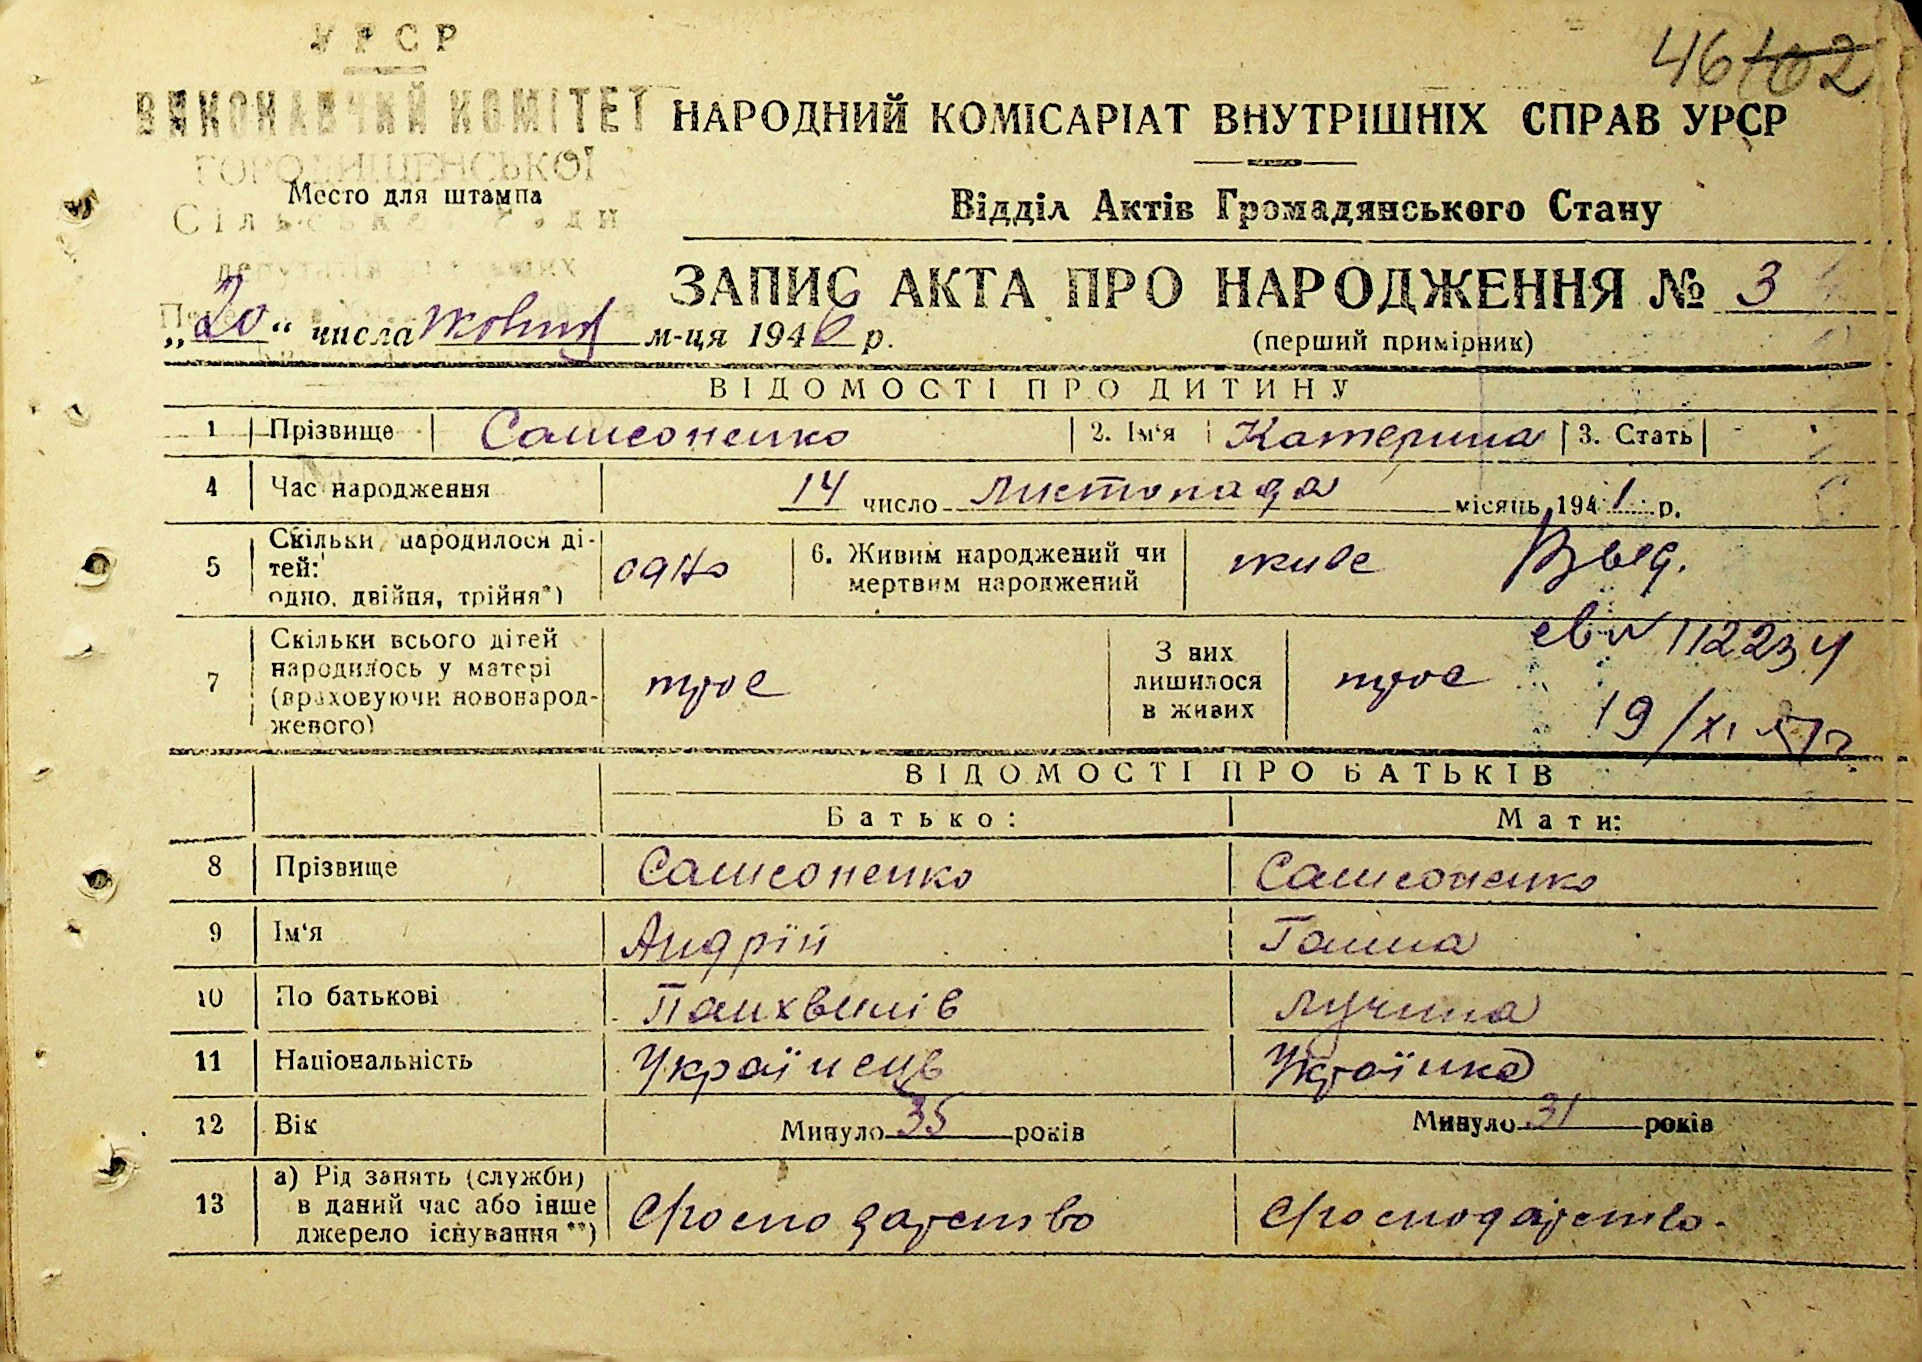 УРСР
46 102
ВИКОНАВЧИЙ КОМІТЕТ
НАРОДНИЙ КОМІСАРІАТ ВНУТРІШНІХ СПРАВ УРСР
ГОРОДИЩЕНСЬКОЇ
Место для штампа
Відділ Актів Громадянського Стану
ЗАПИС АКТА ПРО НАРОДЖЕННЯ № 3
„20“ числа жовтня м-ця 1946 р.
(перший примірник)
ВІДОМОСТІ ПРО ДИТИНУ
1 Прізвище Самсоненко 2. Ім'я Катерина 3. Стать
4 Час народження 14 число листопада місяць 1941 р.
5 Скільки народилося ді-
тей:
одно, двійня, трійня*)
одно
6. Живим народжений чи
мертвим народжений
живе
Выд.
7 Скільки всього дітей
народилось у матері
(враховуючи новонарод-
жевого)
троє
З них
лишилося
в живих
троє
св № 112234
19/XI
ВІДОМОСТІ ПРО БАТЬКІВ
Батько: Мати:
8 Прізвище Самсоненко Самсоненко
9 Ім'я Андрій Ганна
10 По батькові Панхвилів Лучина
11 Національність Українець Українка
12 Вік Минуло 35 років Минуло 31 років
13 а) Рід занять (служби)
в даний час або інше
джерело існування **)
Г росподарство Г росподарство.